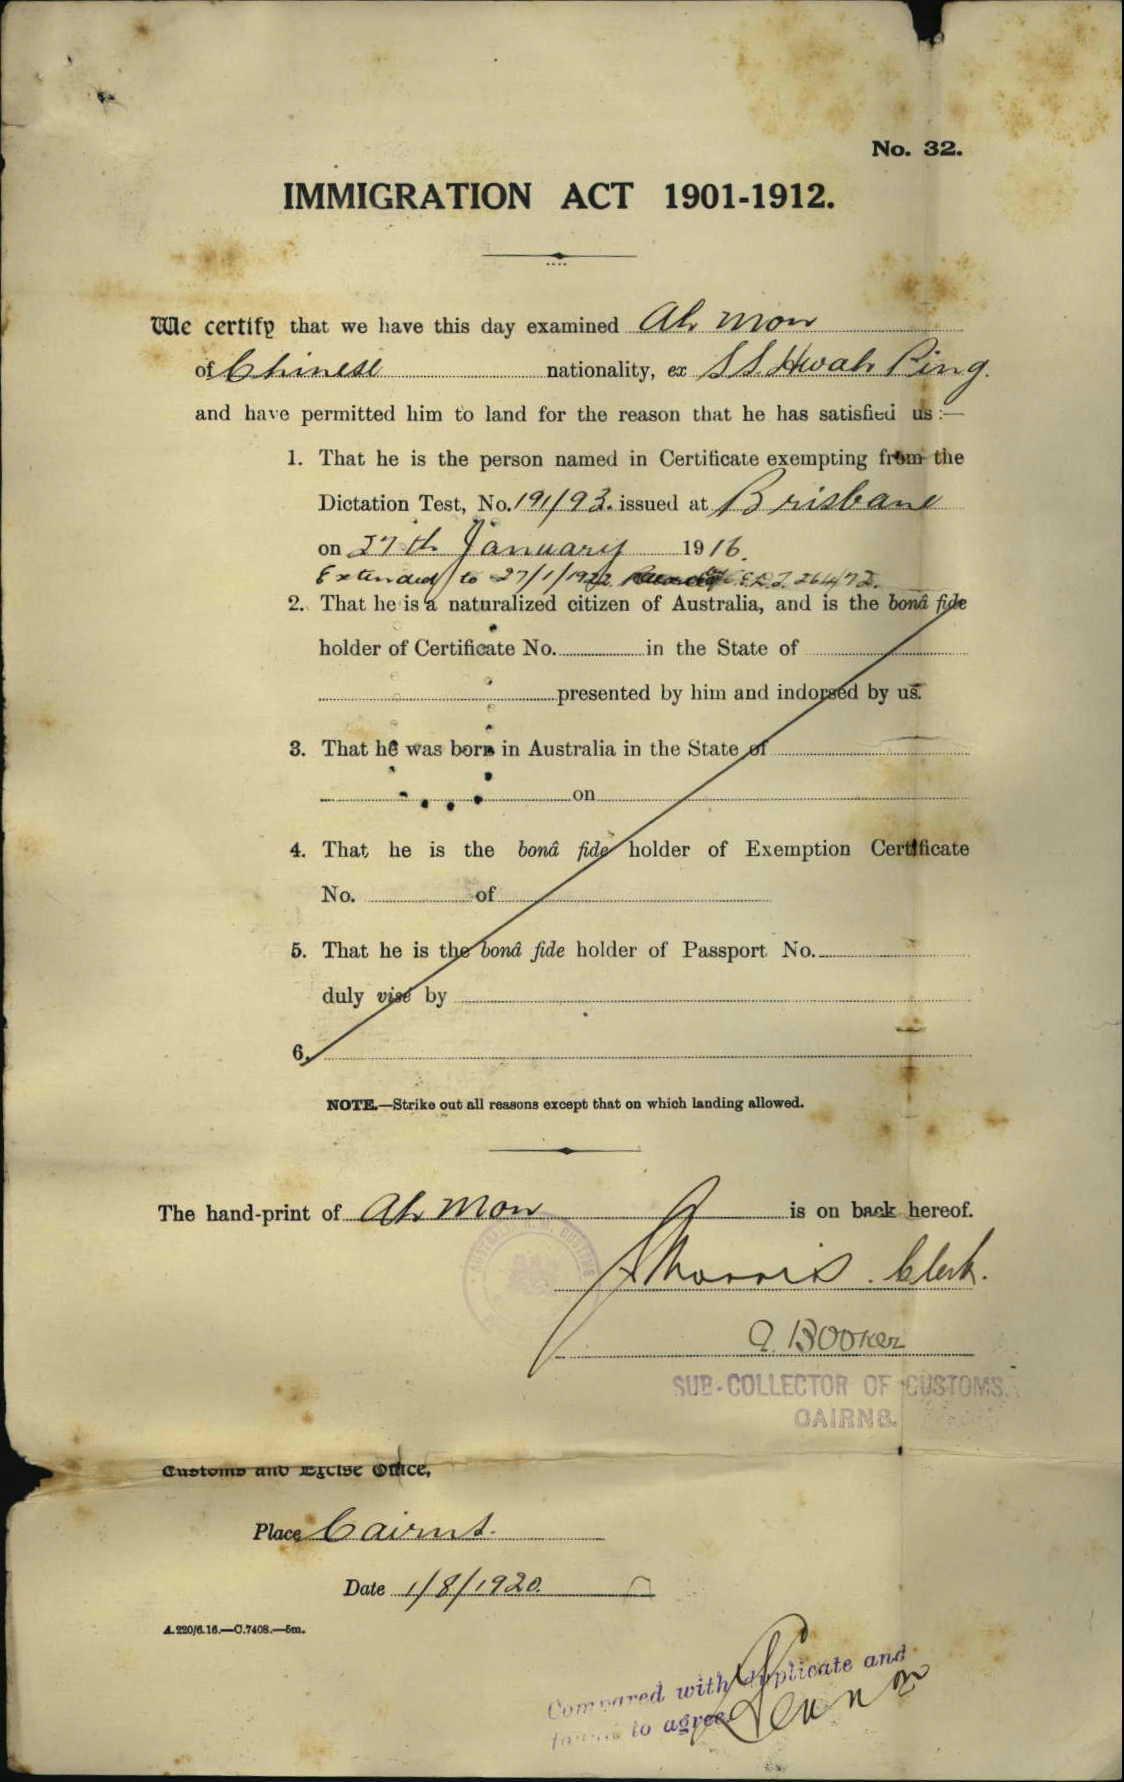 No. 32.
IMMIGRATION ACT 1901-1912.
We certify that we have this day examined Ah Mon
of Chinese nationality, ex S.S. Hwah Ping.
and have permitted him to land for the reason that he has satisfied us :—
1. That he is the person named in Certificate exempting from the
Dictation Test, No. 191/93. issued at Brisbane
on 27th January 1916.
Extended to 27/1/1922 C.E.D.T. 264/72.
2. That he is a naturalized citizen of Australia, and is the bonâ fide
holder of Certificate No. in the State of
presented by him and indorsed by us.
3. That he was born in Australia in the State of
on
4. That he is the bonâ fide holder of Exemption Certificate
No. of
5. That he is the bonâ fide holder of Passport No.
duly visé by
6.
NOTE.—Strike out all reasons except that on which landing allowed.
The hand-print of Ah Mon is on back hereof.
Morris. Clerk.
A. Booker
SUB-COLLECTOR OF CUSTOMS.
CAIRNS.
Customs and Excise Office,
Place Cairns.
Date 1/8/1920.
A.220/6.16.—C.7408.—5m.
Compared with duplicate and
found to agree